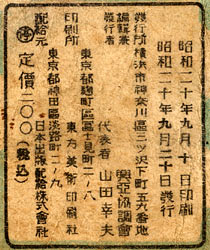 昭和二十年九月十日印刷
昭和二十年九月二十日発行
発行所横浜市神奈川區三ツ沢下町五六番地
編輯兼
発行者
興亞協調會
代表者 山田幸夫
東京都麹町區富士見町二ノ八
印刷所
東方美術印刷社
東京都神田區淡路町二ノ九
配給元
日本出版配給株式會社
定價二・〇〇(税込)